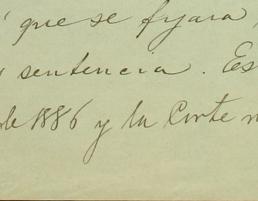 que se fyara
sentencia. Es
de 1886 y la Corte